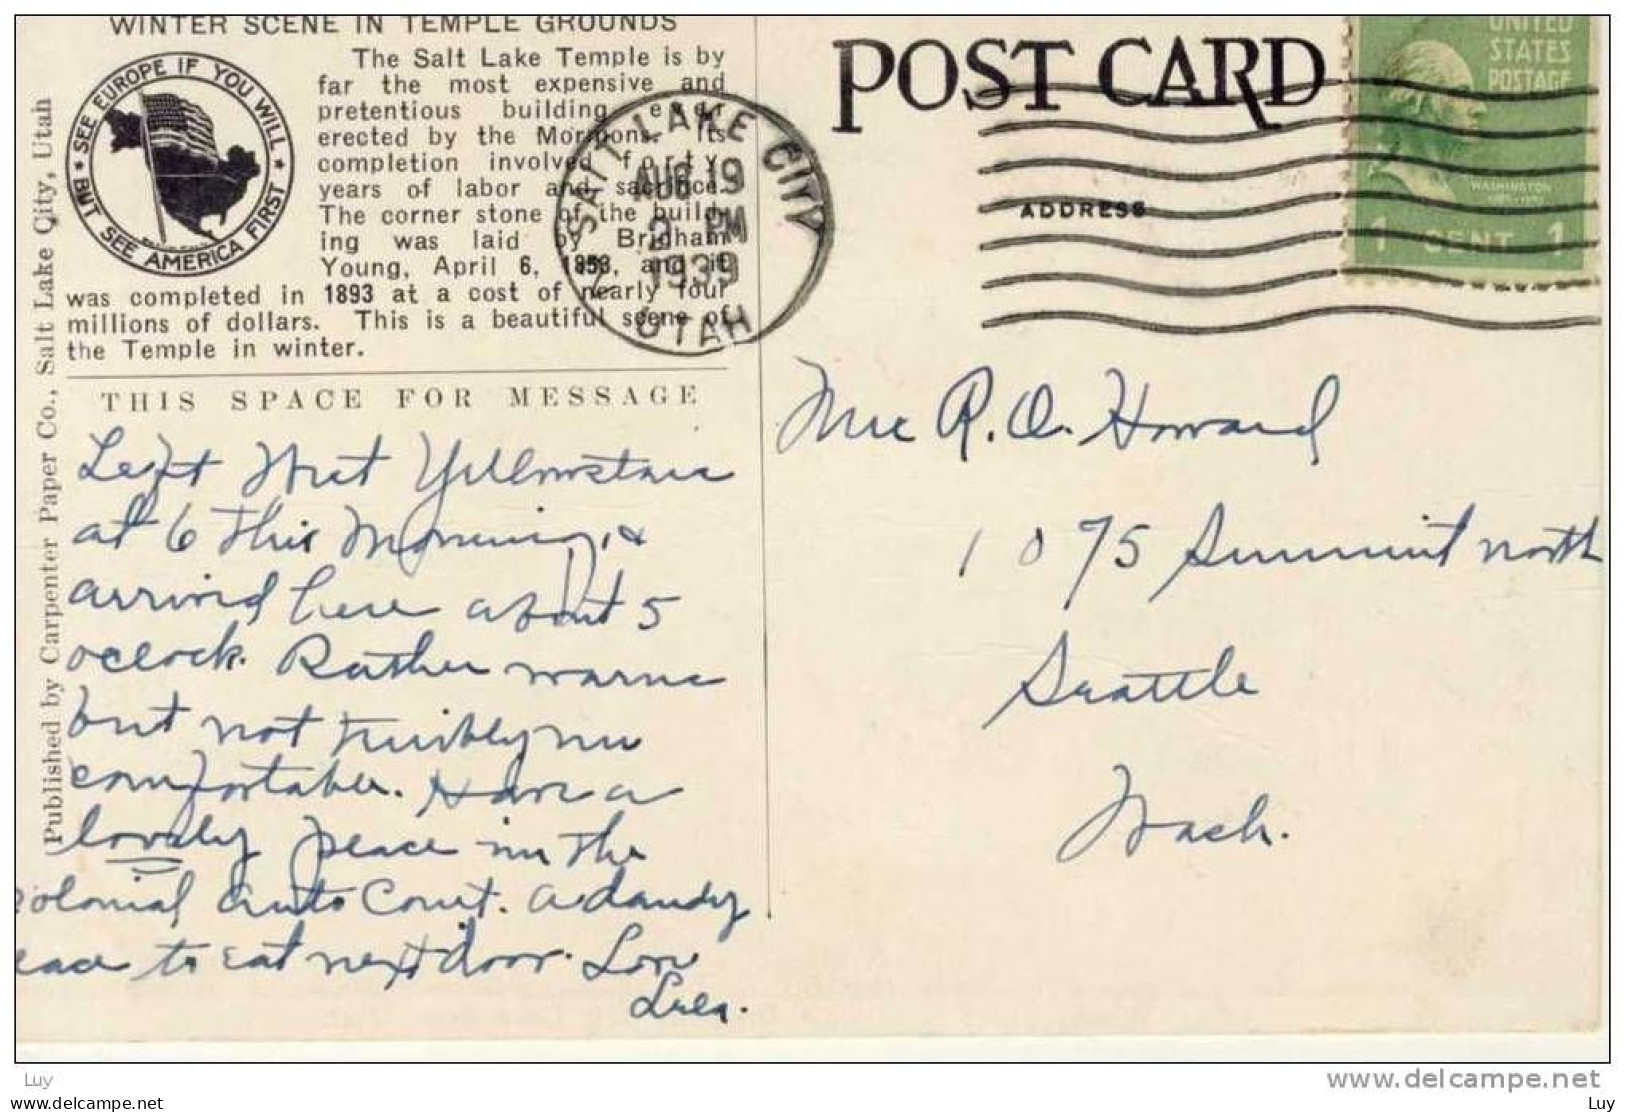 WINTER SCENE IN TEMPLE GROUNDS
The Salt Lake Temple is by
far the most expensive and
pretentious building ever
erected by the Mormons. Its
completion involved forty
years of labor and sacrifice.
The corner stone of the build-
ing was laid by Brigham
Young, April 6, 1853, and it
was completed in 1893 at a cost of nearly four
millions of dollars. This is a beautiful scene of
the Temple in winter.
SEE EUROPE IF YOU WILL
BUT SEE AMERICA FIRST
Published by Carpenter Paper Co., Salt Lake City, Utah
THIS SPACE FOR MESSAGE
Left West Yellowstone
at 6 this morning, &
arrived here about 5
oclock. Rather warm
but not terribly un
comfortable. Have a
lovely place in the
Colonial Auto Court. A dandy
lace to eat next door. Love
POST CARD
SALT LAKE CITY
AUG 19
PM
1939
UTAH
UNITED
STATES
POSTAGE
WASHINGTON
1 CENT 1
ADDRESS
Mrs R. O. Howard
1075 Summit North
Seattle
Wash.
Luy
www.delcampe.net
www.delcampe.net
Luy